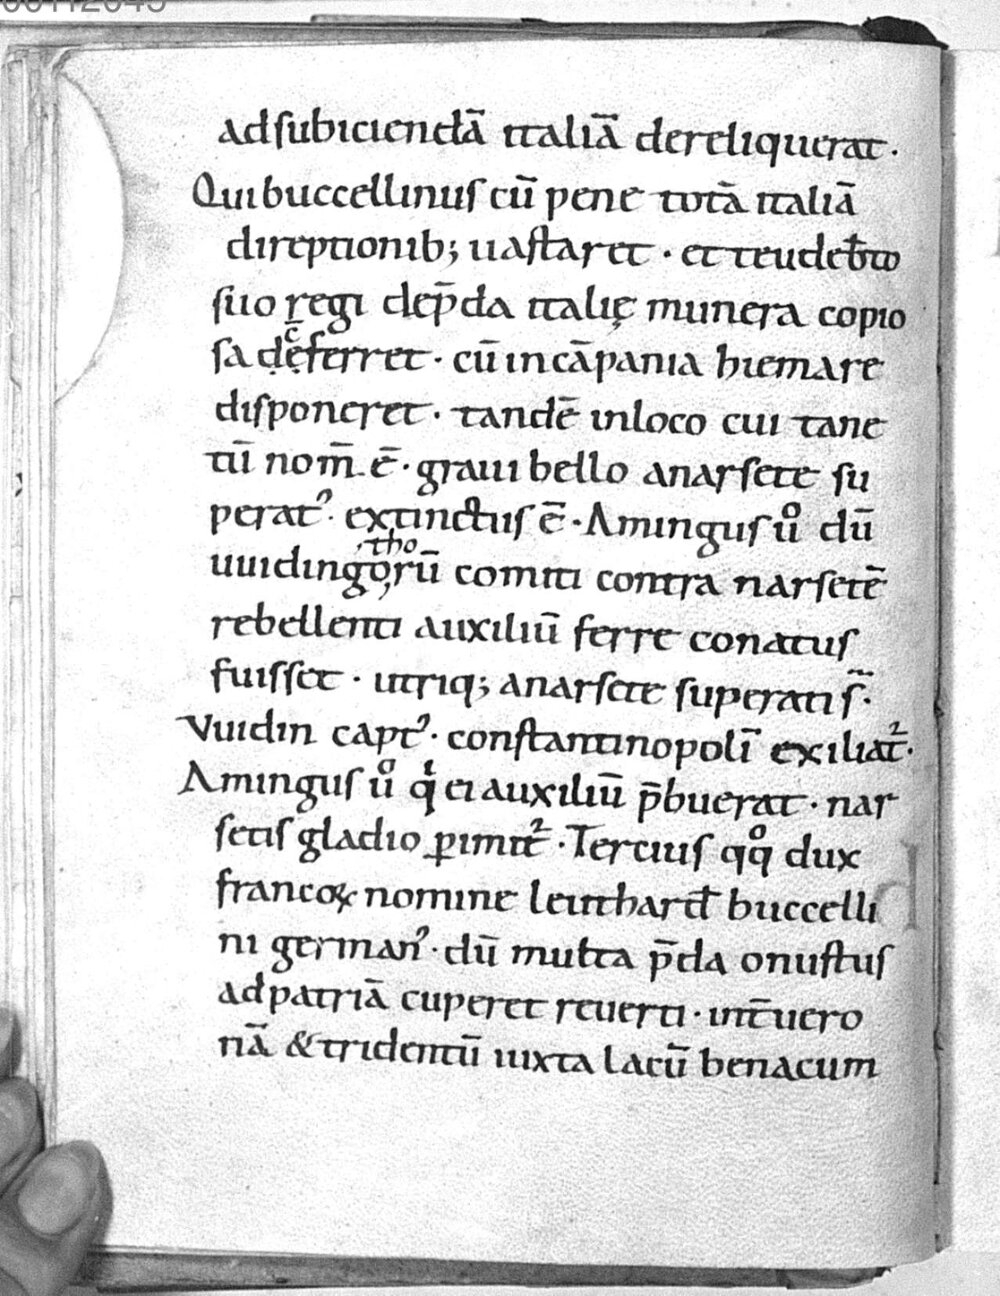 adſubiciendā italiā dereliquerat·
Qui buccellinuſ cū pene totā italiā
direptionib; uaſtaret · et teudeb̄to
ſuo regi dep̄da italię munera copio
ſa deferret · cū in cāpania hiemare
diſponeret · tandē inloco cui tane
tū nom̄ ē · graui bello anarſete ſu
perat᾽ · extinctuſ ē · Aminguſ uͦ dū
uuidin gothorū comiti contra narſetē
rebellenti auxiliū ferre conatuſ
fuiſſet · utriq; anarſete ſuperati ſ̃·
Vuidin capt᾽ · conſtantinopolī exiliat᾽·
Aminguſ uͦ qͥ ei auxiliū p̄buerat · nar
ſetiſ gladio ꝑimit᾽ · Terciuſ qͦq dux
francoꝝ nomine leuthard̄ buccelli
ni german᾽ · dū multa p̄da onuſtuſ
ad patriā cuperet reuerti · int̄ uero
nā & tridentū iuxta lacū benacum